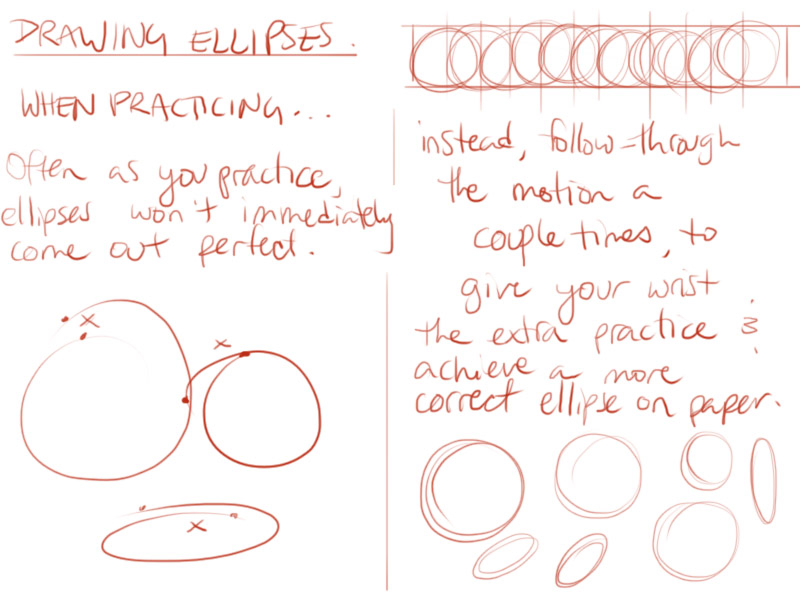 DRAWING ELLIPSES.
WHEN PRACTICING...
Often as you practice,
ellipses won't immediately
come out perfect.
x
x
x
instead, follow-through
the motion a
couple times, to
give your wrist
the extra practice &
achieve a more
correct ellipse on paper.